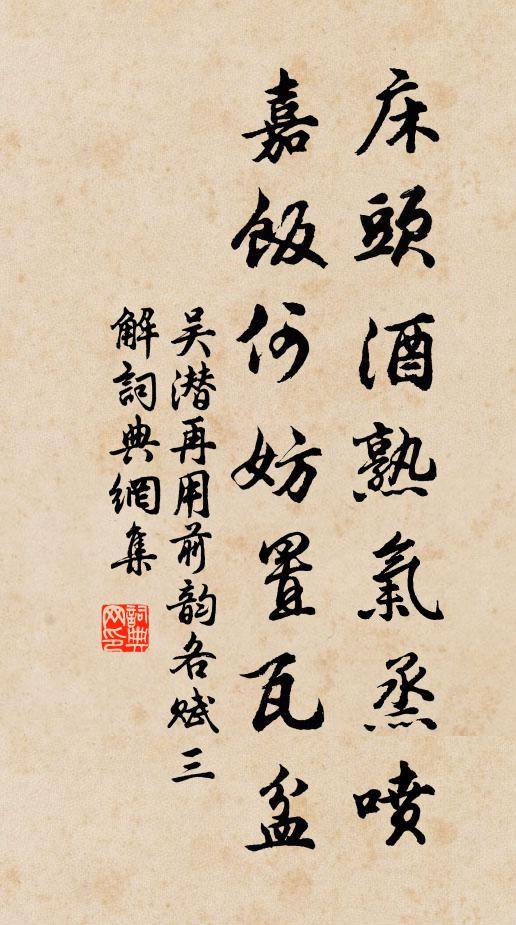 床頭酒熟氣烝噴
嘉飯何妨置瓦盆
吳潜再用前韵各賦三
解詞典網集
詞典網印